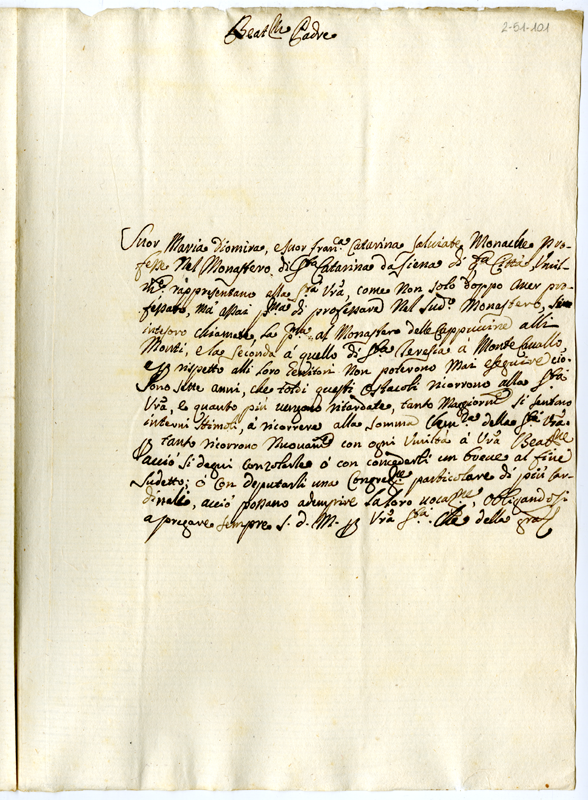 2-51-101
Beat.mo Padre
Suor Maria Diomira, e suor Fran.ca Catarina Salviate Monache pro-
fesse nel Monastero di S.ta Catarina da Siena di q.ta Città umil-
m.te rappresentano alla S.tà Vrã, come non solo doppo aver pro-
fessato, ma assai p.ma di professare nel sud.o Monastero, si
intesero chiamate, la p.ma al Monastero delle Cappuccine alli
Monti, e la seconda a quello di S.ta Teresia à Monte Cavallo,
e p rispetto alli loro Genitori non poterono mai eseguire ciò.
Sono sette anni, che tolti questi ostacoli ricorrono alla S.tà
Vrã, e quanto più vengono ritardate, tanto maggiorm.te si sentono
interni stimoli, à ricorrere alla somma Clem.za della S.tà Vrã.
p tanto ricorrono nuovam.te con ogni umiltà à Vrã Beat.ne
acciò si degni consolarle ò con concederli un breve al fine
sudetto; ò con deputarli una Congreg.ne particolare di più Car-
dinali, acciò possano adempire la loro vocap.ne, obligandosi
a pregare sempre S. D. M. p Vrã S.tà. Che della grã